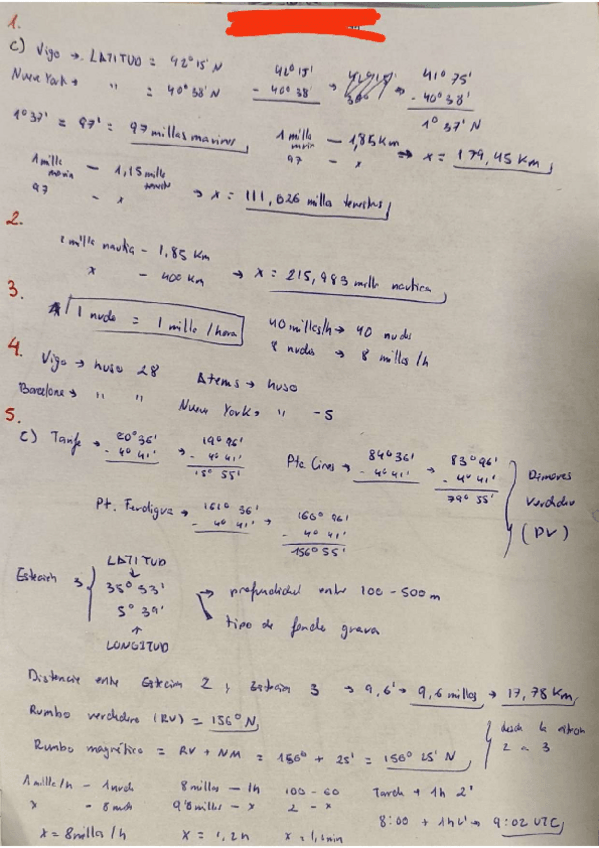 1.
c) Vigo → LATITUD = 42° 15' N
Nueva York → " = 40° 38' N
42° 15' - 40° 38' → → 41° 75' - 40° 38' 1° 37' N
1° 37' = 97' = 97 millas marinas
1 milla marin — 1,85 Km
97 — x → x = 179,45 Km
1 milla marin — 1,15 milla terrest
97 — x → x = 111,626 milla terrestres
2.
1 milla nautica — 1,85 Km
x — 400 Km → x = 215,983 milla nautica
3.
1 nudo = 1 milla / hora
40 millas/h → 40 nudos
8 nudos → 8 millas / h
4.
Vigo → huso 28
Barcelona → " "
Atenas → huso
Nueva York → " -5
5.
c) Tarifa → 20° 36' - 4° 41' → 19° 96' - 4° 41' 15° 55'
Pta. Cires → 84° 36' - 4° 41' → 83° 96' - 4° 41' 79° 55'
Pt. → 161° 36' - 4° 41' → 160° 96' - 4° 41' 156° 55'
verdadero
(DV)
Estacion 3
LATITUD
↓
35° 53'
5° 39'
↑
LONGITUD
→ profundidad entre 100 - 500 m
tipo de fondo grava
Distancia entre Estacion 2 y Estacion 3 → 9,6' → 9,6 millas → 17,78 Km
Rumbo verdadero (RV) = 156° N
Rumbo magnético = RV + NM = 156° + 25' = 156° 25' N
desde la
2 a 3
1 milla/h — 1 nudo
x — 8 nudo
x = 8 milla / h
8 millas — 1h
9,6 millas — x
x = 1,2 h
100 - 60
2 - x
x = 1,2 min
Tarda → 1h 2'
8:00 + 1h 2' → 9:02 UTC